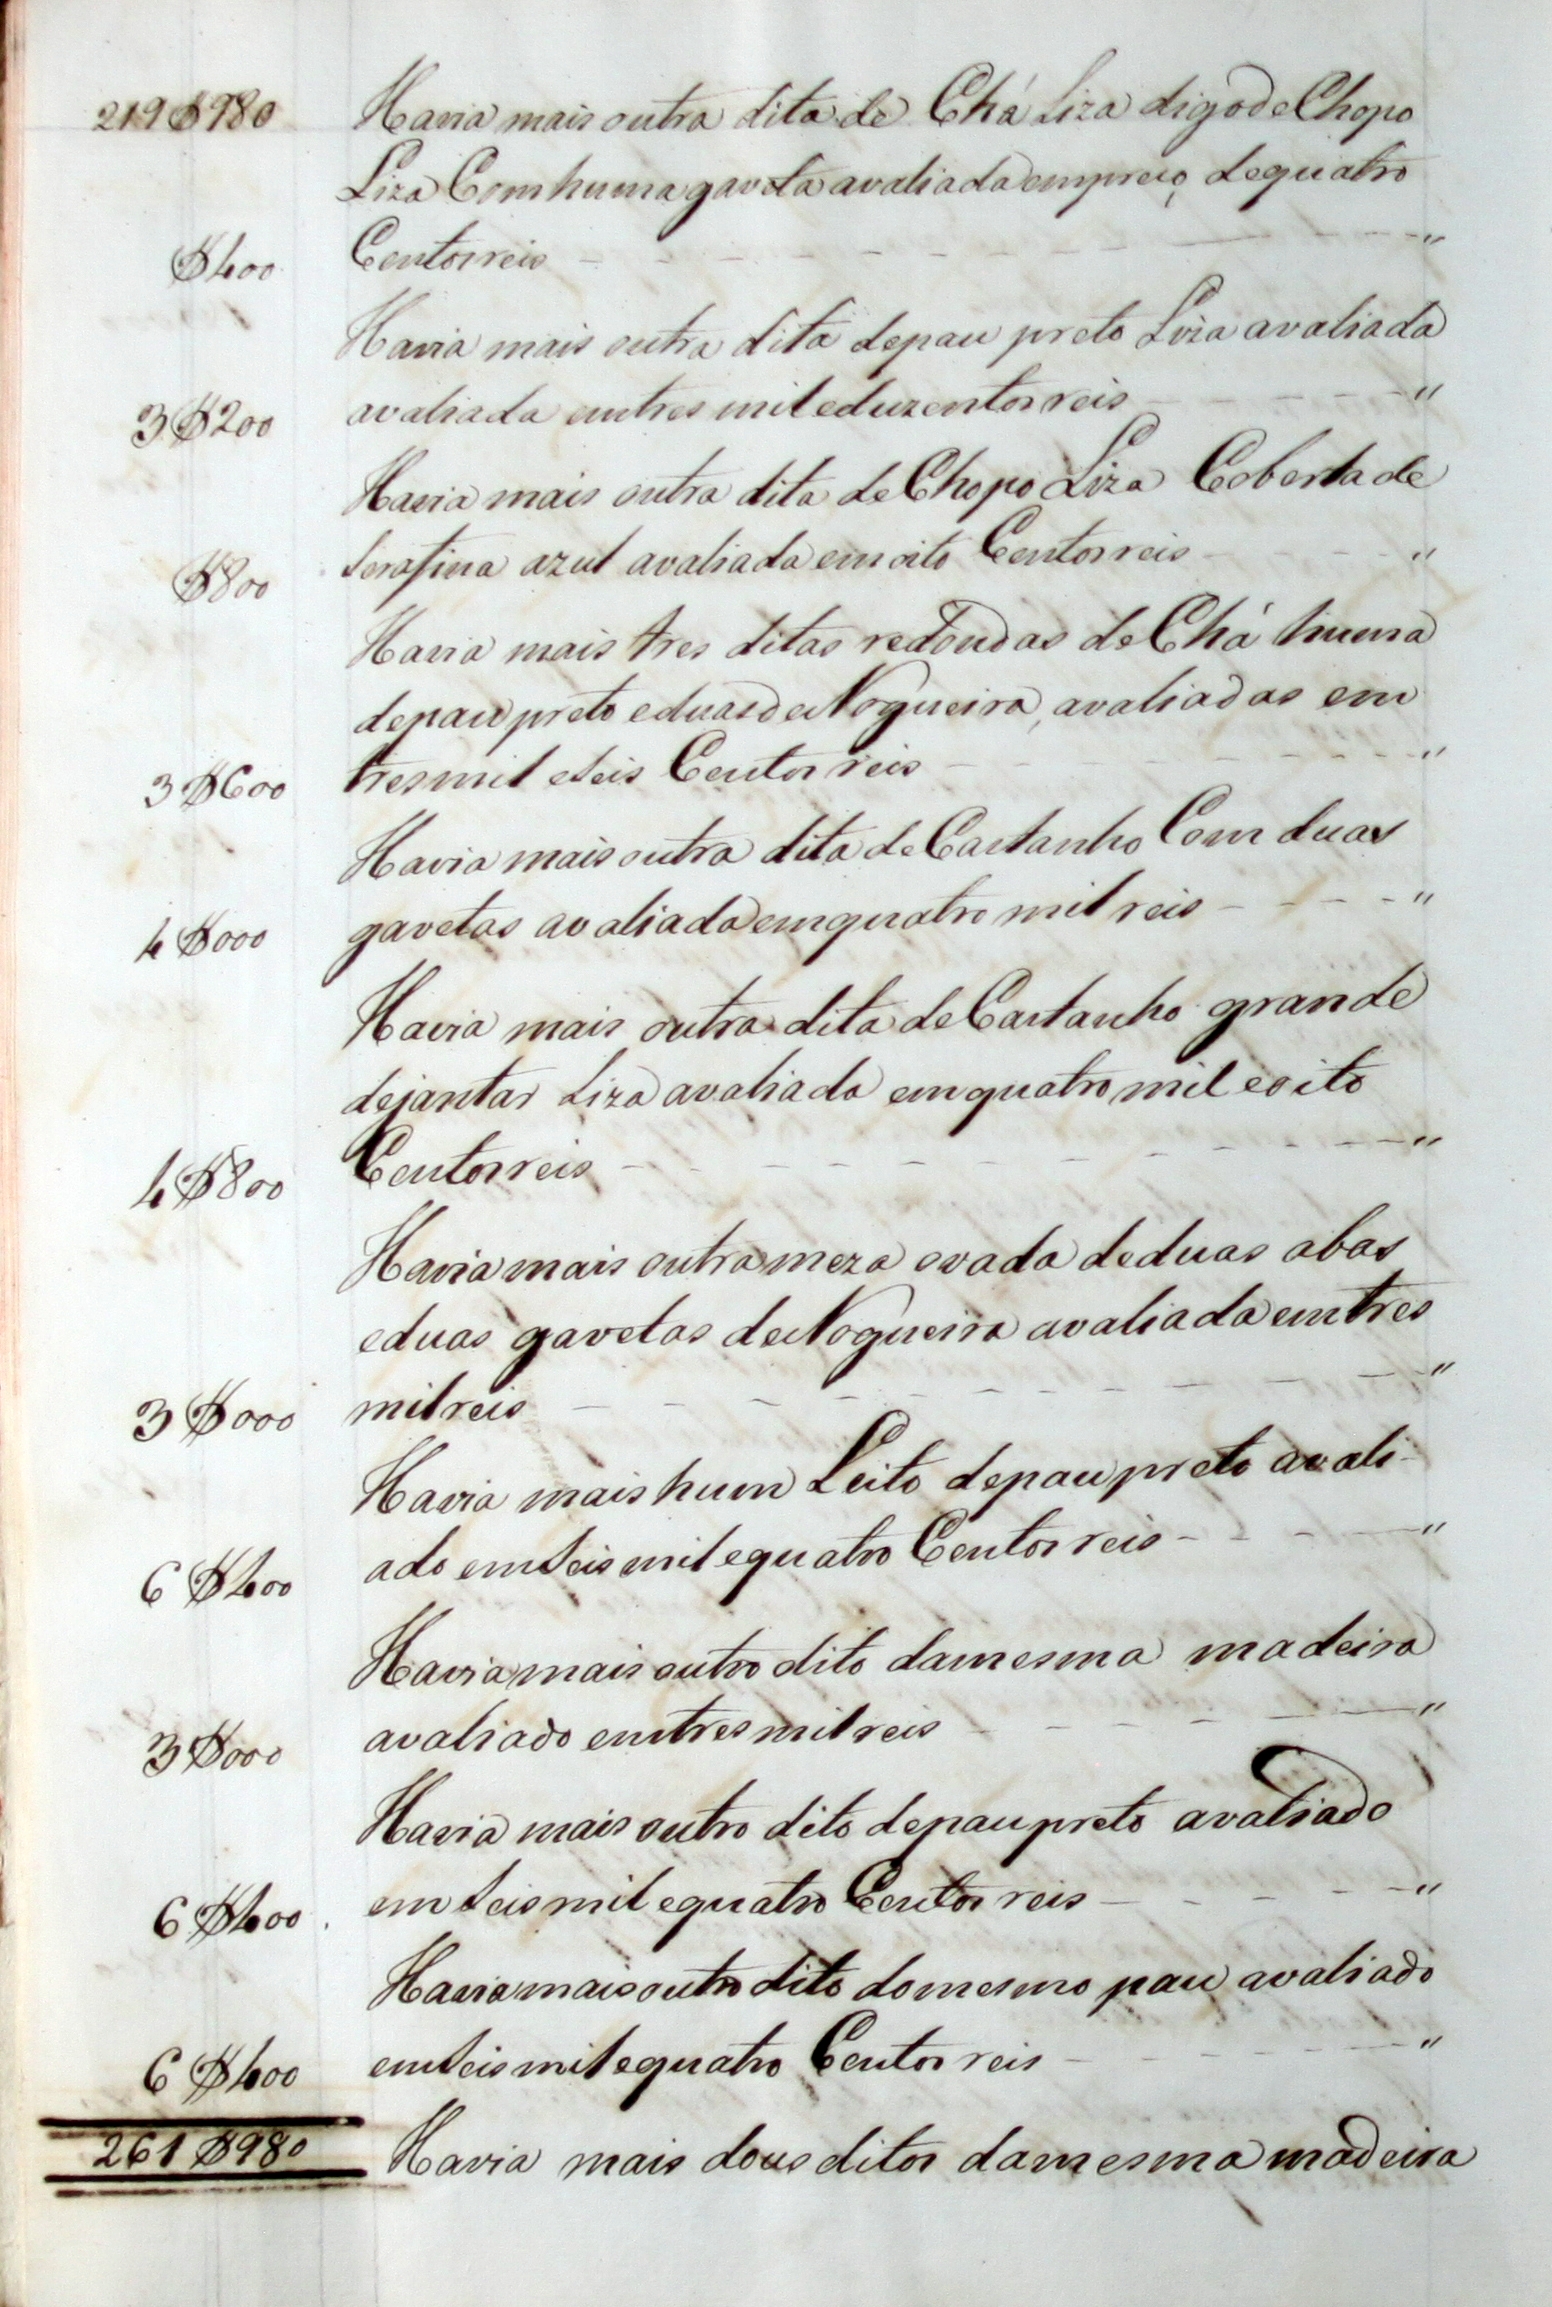 219$980 Havia mais outra dita de Chá Liza digo de Chopo
Liza Com huma gaveta avaliada em preço de quatro
$400 Centos reis — "
Havia mais outra dita de pau preto Liza avaliada
3$200 avaliada em tres mil e duzentos reis — "
Havia mais outra dita de Chopo Liza Coberta de
$800 serafina azul avaliada em oito Centos reis — "
Havia mais tres ditas redondas de Chá huma
de pau preto e duas de Nogueira, avaliadas em
3$600 tres mil e seis Centos reis — "
Havia mais outra dita de Castanho Com duas
4$000 gavetas avaliada em quatro mil reis — "
Havia mais outra dita de Castanho grande
de jantar Liza avaliada em quatro mil e oito
4$800 Centos reis — "
Havia mais outra meza ovada de duas abas
e duas gavetas de Nogueira avaliada em tres
3$000 mil reis — "
Havia mais hum Leito de pau preto avali-
6$400 ado em seis mil e quatro Centos reis — "
Havia mais outro dito da mesma madeira
3$000 avaliado em tres mil reis — "
Havia mais outro dito de pau preto avaliado
6$400 em seis mil e quatro Centos reis — "
Havia mais outro dito do mesmo pau avaliado
6$400 em seis mil e quatro Centos reis — "
261$980 Havia mais dous ditos da mesma madeira